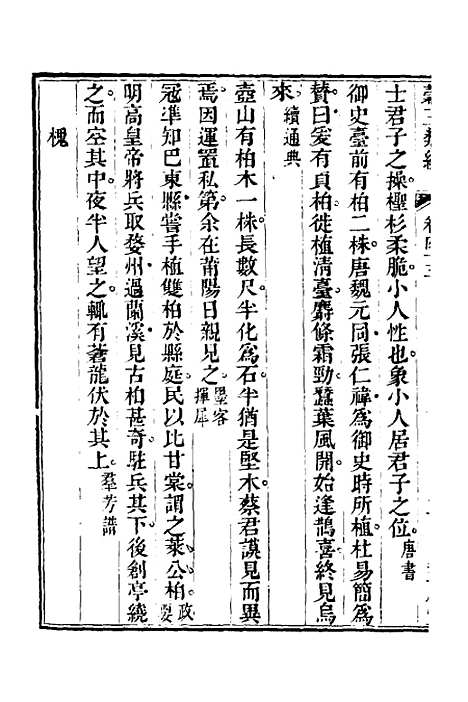 卷四十五
士君子之操檉杉柔脆小人性也象小人居君子之位唐書
御史臺前有柏二株唐魏元同張仁禕爲御史時所植杜易簡爲
贊曰爰有貞柏徙植清臺麝條霜勁蠶葉風開始逢鵲喜終見烏
來續通典
壺山有柏木一株長數尺半化爲石半猶是堅木蔡君謨見而異
焉因運置私第余在莆陽日親見之墨客揮犀
冦準知巴東縣嘗手植雙柏於縣庭民以比甘棠謂之萊公柏政要
明高皇帝將兵取婺州過蘭溪見古柏甚奇駐兵其下後創亭繞
之而空其中夜半人望之輒有蒼龍伏於其上羣芳譜
槐